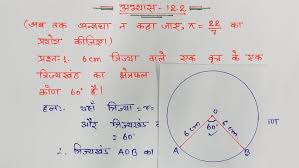 अभ्यास - 12.2
(जब तक अन्यथा न कहा जाए, π = 22/7 का
प्रयोग कीजिए।)
प्रश्न-1. 6cm त्रिज्या वाले एक वृत्त के एक
त्रिज्यखंड का क्षेत्रफल
कोण 60° है।
हल:- यहाँ त्रिज्या = r =
और त्रिज्यखंड
= 60°
∴ त्रिज्यखंड AOB का
O
60°
6 cm
6 cm
A
B